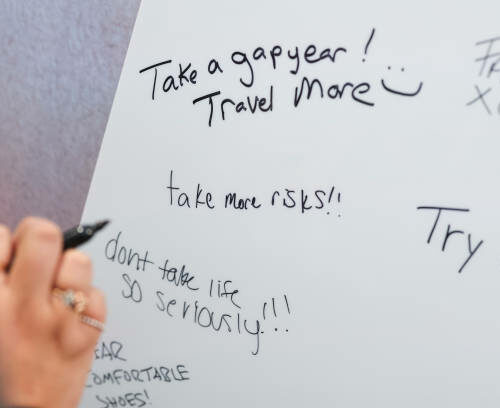 Take a gap year!
Travel More
take more risks!!
Try
dont take life
so seriously!!!
COMFORTABLE
SHOES!